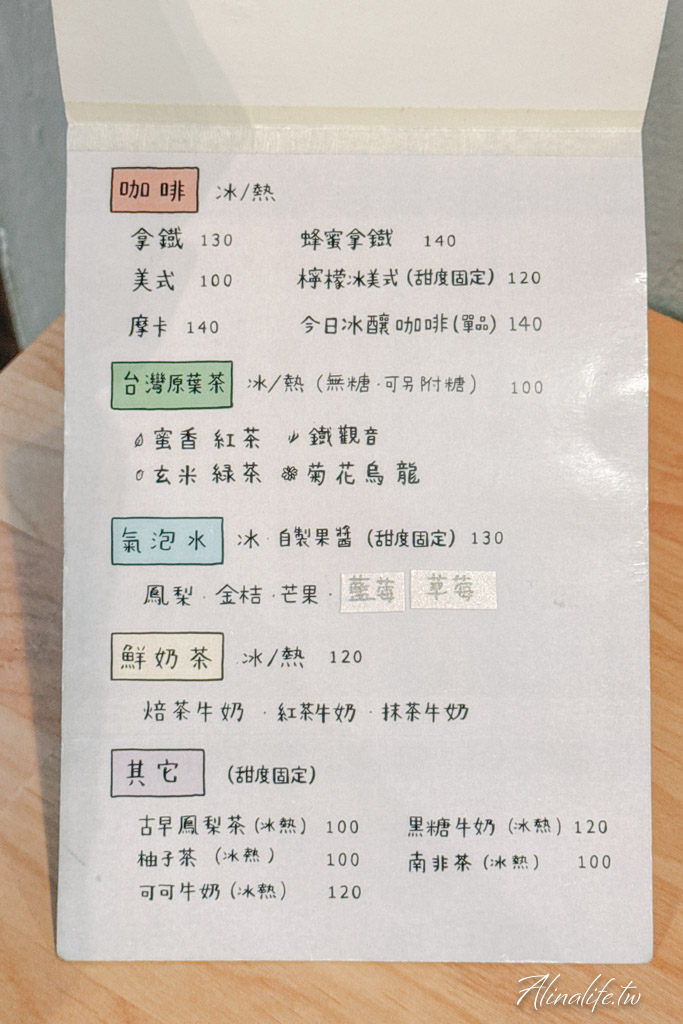 咖啡 冰/熱
拿鐵 130 蜂蜜拿鐵 140
美式 100 檸檬冰美式(甜度固定) 120
摩卡 140 今日冰釀咖啡(單品) 140
台灣原葉茶 冰/熱(無糖·可另附糖) 100
蜜香紅茶 鐵觀音
玄米綠茶 菊花烏龍
氣泡水 冰·自製果醬(甜度固定) 130
鳳梨·金桔·芒果·藍莓 草莓
鮮奶茶 冰/熱 120
焙茶牛奶·紅茶牛奶·抹茶牛奶
其它 (甜度固定)
古早鳳梨茶(冰熱) 100 黑糖牛奶(冰熱) 120
柚子茶(冰熱) 100 南非茶(冰熱) 100
可可牛奶(冰熱) 120
Alinalife.tw